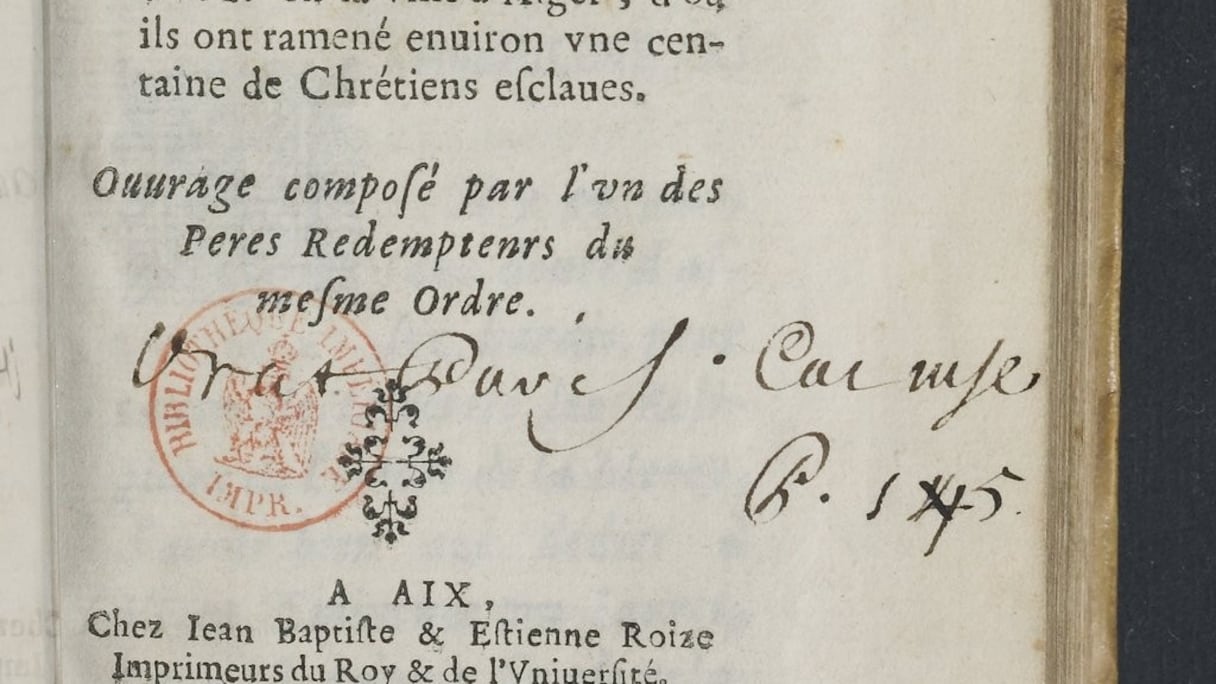 en la ville d'Alger, d'où
ils ont ramené enuiron vne cen-
taine de Chrétiens eſclaues.
Ouurage compoſé par l'vn des
Peres Redempteurs du
meſme Ordre.
BIBLIOTHÈQUE IMPÉRIALE
IMPR.
A AIX,
Chez Iean Baptiſte & Eſtienne Roize
Imprimeurs du Roy & de l'Vniuerſité.